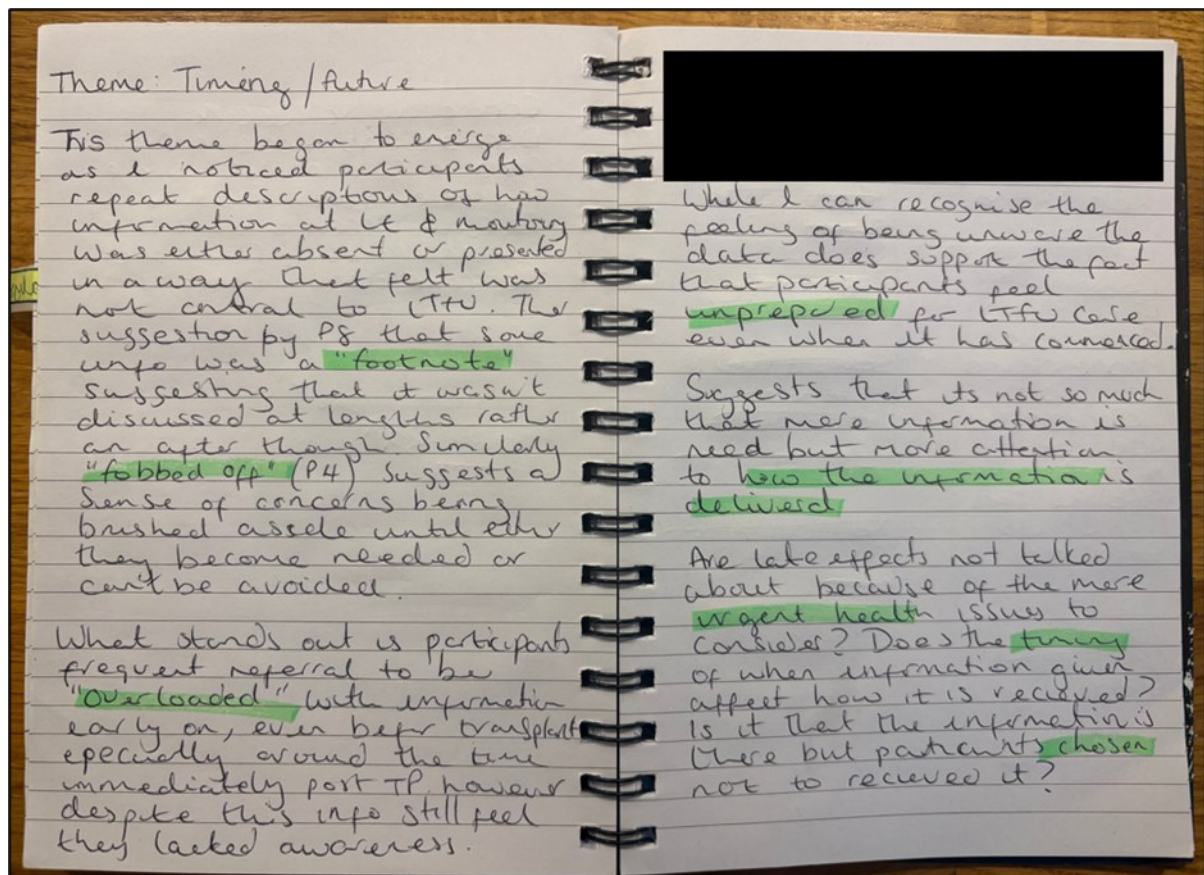 Theme: Timing / future
This theme began to emerge
as I noticed participants
repeat descriptions of how
information at LE & monitoring
was either absent or presented
in a way that felt was
not central to LTFU. The
suggestion by P8 that some
info was a "footnote"
suggesting that it wasn't
discussed at lengths rather
an after though. Similarly
"fobbed off" (P4) suggests a
sense of concerns being
brushed asside until either
they become needed or
can't be avoided.
What stands out is participants
frequent referral to be
"overloaded" with information
early on, even befor transplant
epecially around the time
immediately post TP however
despite this info still feel
they lacked awareness.
While I can recognise the
feeling of being unware the
data does support the fact
that participants feel
unprepared for LTFU care
even when it has commenced.
Suggests that its not so much
that more information is
need but more attention
to how the information is
deliverd
Are late effects not talked
about because of the more
urgent health issues to
consider? Does the timing
of when information given
affect how it is recieved?
Is it that the information is
there but patients chosen
not to recieved it?